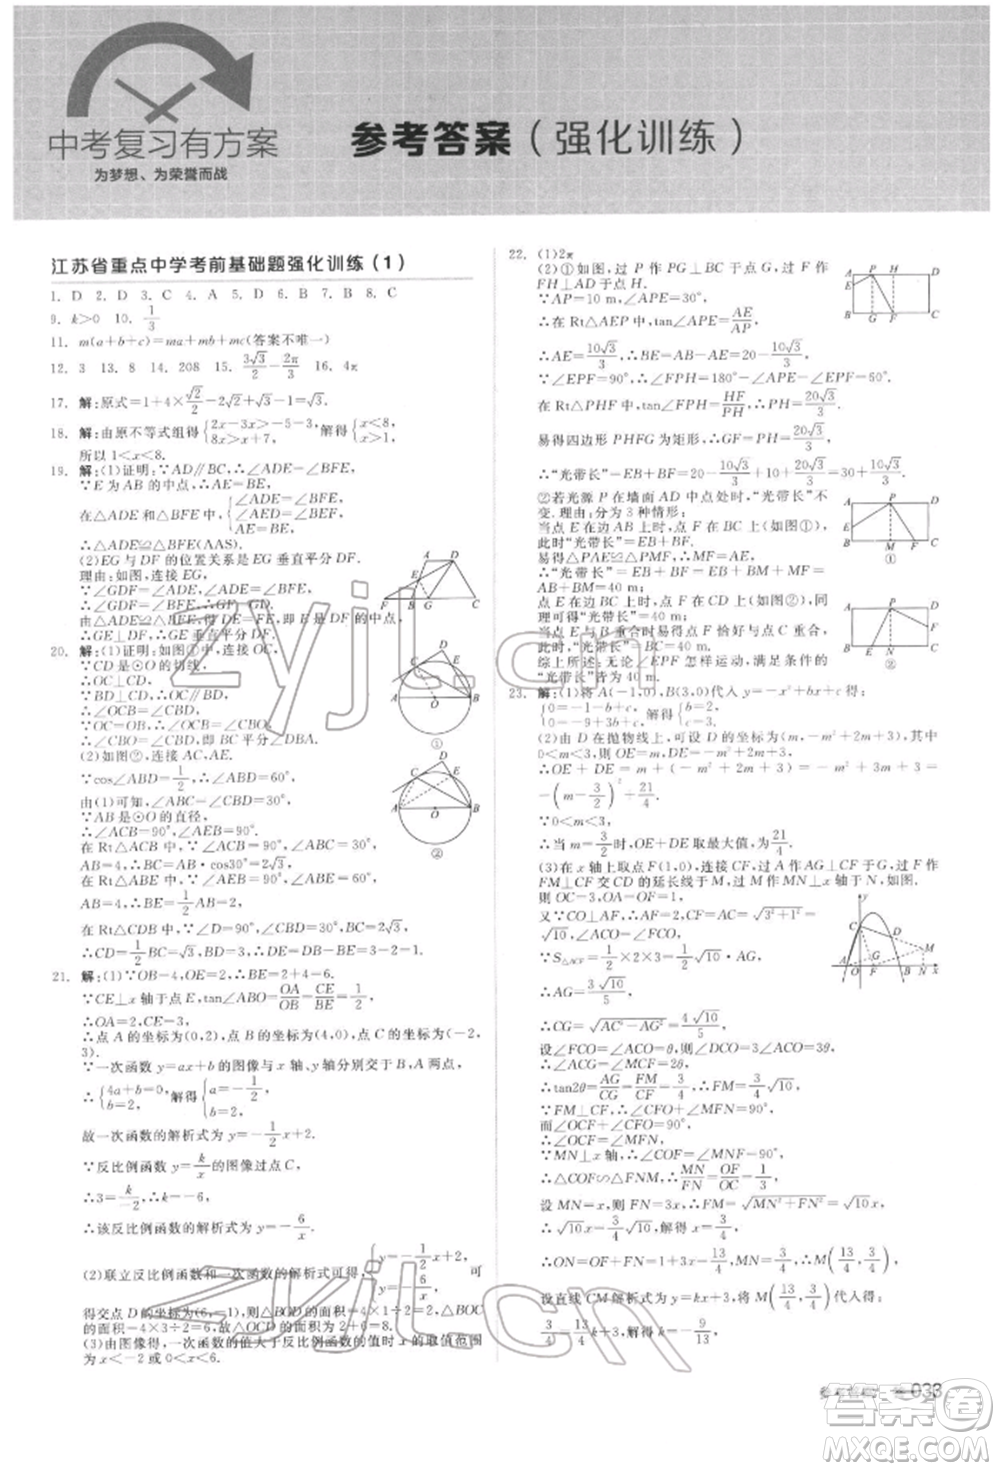 中考复习有方案
为梦想、为荣誉而战
参考答案(强化训练)
江苏省重点中学考前基础题强化训练(1)
1. D 2. D 3. C 4. A 5. D 6. B 7. B 8. C
9. k>0 10. 1/3
11. m(a+b+c)=ma+mb+mc(答案不唯一)
12. 3 13. 8 14. 208 15. 3√3/2-2π/3 16. 4π
17. 解:原式=1+4×√2/2-2√2+√3=1+√3.
18. 解:由原不等式组得{2x-3x>-5-3, 8x>x+7, 解得{x<8, x>1.
所以 1<x<8.
19. 解:(1)证明:∵AD∥BC,∴∠ADE=∠BFE,
∵E为AB的中点,∴AE=BE,
在△ADE和△BFE中,{∠ADE=∠BFE, ∠AED=∠BEF, AE=BE,
∴△ADE≌△BFE(AAS).
(2)EG与DF的位置关系是EG垂直平分DF.
理由:如图,连接EG,
∵∠GDF=∠ADE,∠ADE=∠BFE,
∴∠GDF=∠BFE,∴GF=GD.
由(1)△ADE≌△BFE得DE=FE,即GE为DF上的中线,
∴GE⊥DF,∴GE垂直平分DF.
20. 解:(1)证明:如图①,连接OC,
∵CD是⊙O的切线,
∴OC⊥CD,
∵BD⊥CD,∴OC∥BD,
∴∠OCB=∠CBD.
∵OC=OB,∴∠OCB=∠CBO,
∴∠CBO=∠CBD,即BC平分∠DBA.
(2)如图②,连接AC,AE.
∵cos∠ABD=1/2,∴∠ABD=60°,
由(1)可知,∠ABC=∠CBD=30°.
∵AB为⊙O的直径,
∴∠ACB=90°,∠AEB=90°.
在Rt△ACB中,∠ACB=90°,∠ABC=30°,
AB=4,∴BC=AB·cos30°=2√3.
在Rt△ABE中,∠AEB=90°,∠BAE=30°,
AB=4,∴BE=1/2AB=2.
在Rt△CDB中,∠D=90°,∠CBD=30°,BC=2√3,
∴CD=1/2BC=√3,BD=3,∴DE=BD-BE=3-2=1.
21. 解:(1)∵OB=4,OE=2,∴BE=2+4=6.
∵CE⊥x轴于点E,tan∠ABO=OA/OB=CE/BE=1/2,
∴OA=2,CE=3,
∴点A的坐标为(0,2),点B的坐标为(4,0),点C的坐标为(-2,
3).
∵一次函数y=ax+b的图像与x轴、y轴分别交于B,A两点,
∴{4a+b=0, b=2, 解得{a=-1/2, b=2.
故一次函数的解析式为y=-1/2x+2.
∵反比例函数y=k/x的图像过点C,
∴3=k/-2,∴k=-6,
∴该反比例函数的解析式为y=-6/x.
(2)联立反比例函数和一次函数的解析式可得{y=-1/2x+2, y=-6/x, 可
得交点D的坐标为(6,-1),则△BOD的面积=4×1÷2=2,△BOC
的面积=4×3÷2=6,故△OCD的面积为2+6=8.
(3)由图像得,一次函数的值大于反比例函数的值时x的取值范围
为x<-2或0<x<6.
22. (1)2π
(2)①如图,过点P作PG⊥BC于点G,过点F作
FH⊥AD于点H,
∵AP=10 m,∠APE=30°,
∴在Rt△AEP中,tan∠APE=AE/AP,
∴AE=10√3/3,∴BE=AB-AE=20-10√3/3,
∵∠EPF=90°,∴∠FPH=180°-∠APE-∠EPF=60°.
在Rt△PHF中,tan∠FPH=HF/PH,∴PH=20√3/3,
易得四边形PHFG为矩形,∴GF=PH=20√3/3,
∴“光带长”=EB+BF=20-10√3/3+10+20√3/3=30+10√3/3.
②若光源P在墙面AD中点处时,“光带长”不
变.理由:分为3种情形:
当点E在边AB上时,点F在BC上(如图①),
易得△PAE≌△PMF,∴AE=MF,
∴“光带长”=EB+BF=EB+BM+MF=
AB+BM=40 m;
当点E在边BC上时,点F在边CD上(如图②),
易得“光带长”=40 m;
当点E与B重合时易得点F恰好与点C重合,
“光带长”=40 m.
综上所述:无论∠EPF怎样运动,满足条件的
“光带长”为40 m.
23. 解:(1)将A(-1,0),B(3,0)代入y=-x²+bx+c得:
{0=-1-b+c, 0=-9+3b+c, 解得{b=2, c=3.
(2)由D在抛物线上,可设D的坐标为(m,-m²+2m+3),其中
0<m<3,则OE=m,DE=-m²+2m+3,
∴OE+DE=m-m²+2m+3=-m²+3m+3=
-(m-3/2)²+21/4.
∵0<m<3,
∴当m=3/2时,OE+DE取最大值,为21/4.
(3)在x轴上取点F(1,0),连接CF,过A作AG⊥CF于G,过F作
FM⊥CF交CD的延长线于M,过M作MN⊥x轴于N,如图.
则OC=3,OA=OF=1.
又∵CO⊥AF,∴AF=2,AC=CF=√(3²+1²)=
√10,∠ACO=∠FCO.
∵S△ACF=1/2×2×3=1/2×√10·AG,
∴AG=3√10/5,
∴CG=√(AC²-AG²)=4√10/5.
设∠FCO=∠ACO=θ,则∠DCO=3θ,
∴∠ACG=∠FCM=2θ,
∴tan2θ=AG/CG=FM/CF=3/4.
∵FM⊥CF,∴∠CFO+∠MFN=90°.
∴∠OCF=∠MFN,
∵MN⊥x轴,∴∠COF=∠MNF=90°,
∴△COF∽△FNM,∴MN/FN=OF/OC=1/3,
设MN=x,则FN=3x,∴FM=√(MN²+FN²)=√10x,
∴√10x/√10=3/4,解得x=3/4,
∴ON=OF+FN=1+9/4=13/4,∴M(13/4,3/4),
设直线CM解析式为y=kx+3,将M(13/4,3/4)代入得:
3/4=13/4k+3,∴k=-9/13,
033
答案圈
MXQE.COM
zyjl.cn
zyjl.cn